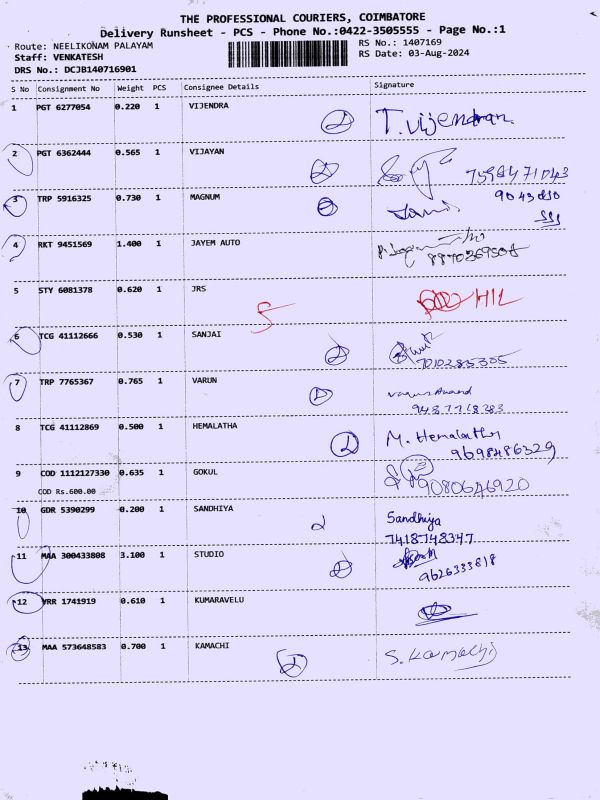 THE PROFESSIONAL COURIERS, COIMBATORE
Delivery Runsheet - PCS - Phone No.:0422-3505555 - Page No.:1
Route: NEELIKONAM PALAYAM RS No.: 1407169
Staff: VENKATESH RS Date: 03-Aug-2024
DRS No.: DCJB140716901
S No Consignment No Weight PCS Consignee Details Signature
1 PGT 6277054 0.220 1 VIJENDRA T.Vijendran
2 PGT 6362444 0.565 1 VIJAYAN
3 TRP 5916325 0.730 1 MAGNUM
4 RKT 9451569 1.400 1 JAYEM AUTO
5 STY 6081378 0.620 1 JRS
6 TCG 41112666 0.530 1 SANJAI 7010285305
7 TRP 7765367 0.765 1 VARUN Varun Anand
8 TCG 41112869 0.500 1 HEMALATHA M. Hemalatha
9698486329
9 COD 1112127330 0.635 1 GOKUL 9080646920
COD Rs.600.00
10 GDR 5390299 0.200 1 SANDHIYA Sandhiya
7418748347
11 MAA 300433808 3.100 1 STUDIO
9626333818
12 VRR 1741919 0.610 1 KUMARAVELU
13 MAA 573648583 0.700 1 KAMACHI S. Kamachi